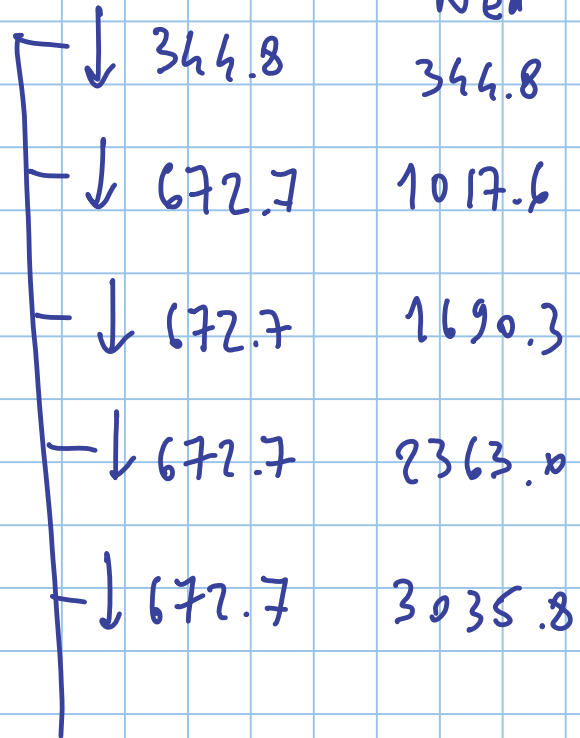 344.8 344.8
672.7 1017.6
672.7 1690.3
672.7 2363.0
672.7 3035.8